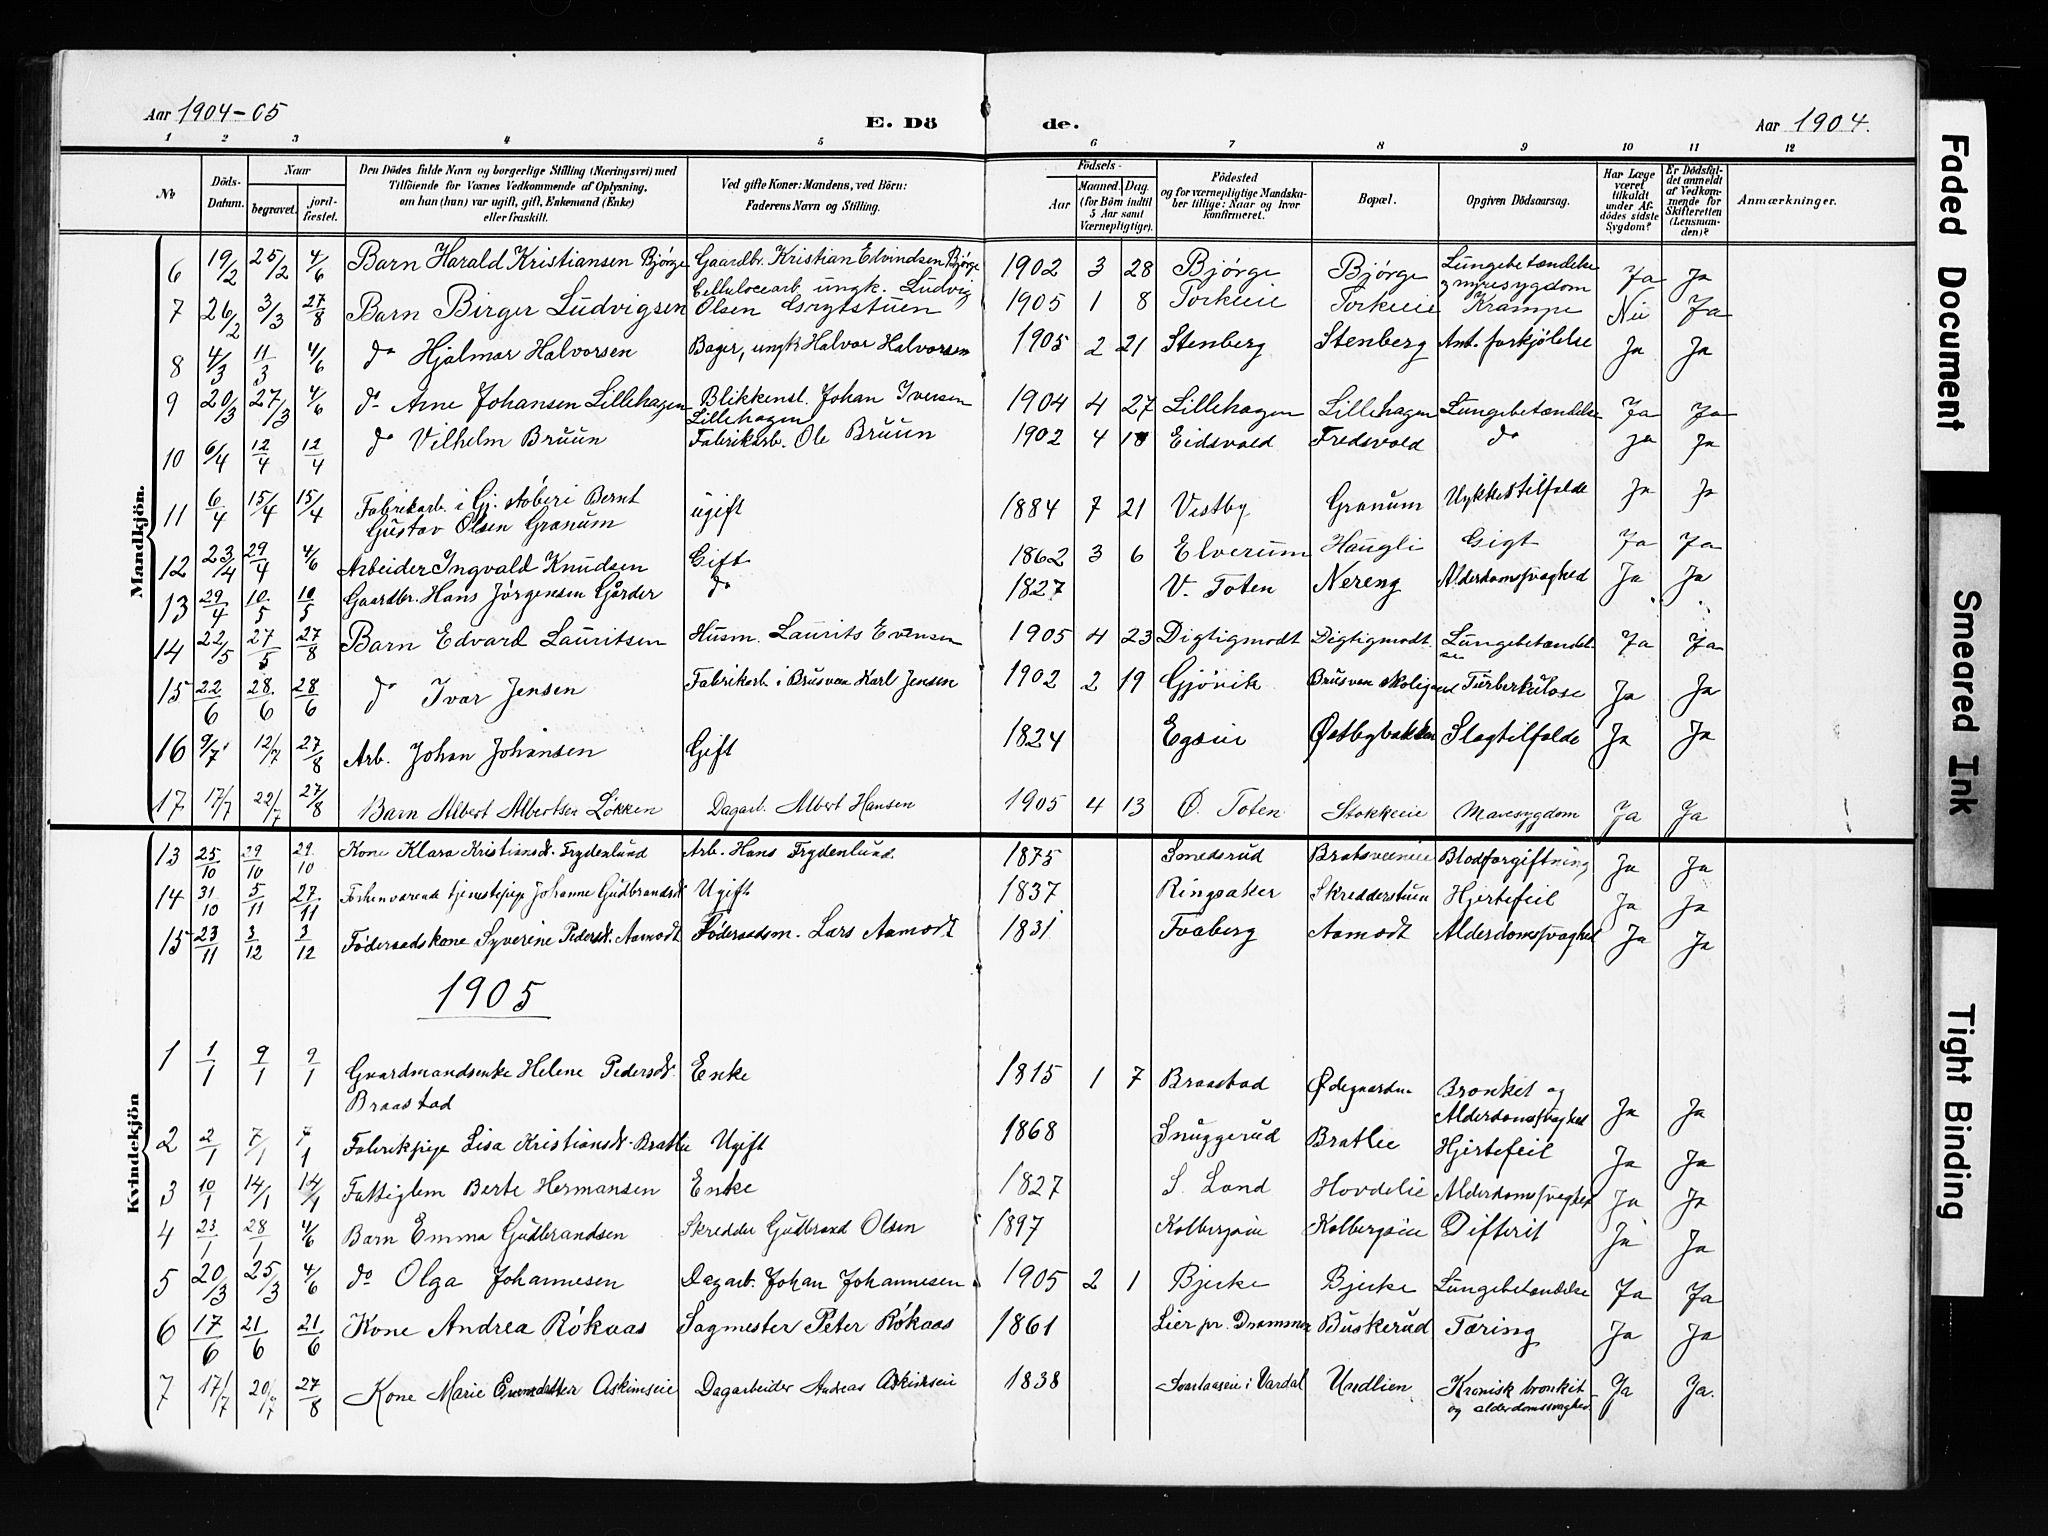 Aar 1904-05
E. Dö de.
Aar 1904.
1 2 3 4 5 6 7 8 9 10 11 12
No
Döds-Datum.
Naar
begravet.
jordfæstet.
Den Dödes fulde Navn og borgerlige Stilling (Næringsvei) med
Tilföiende for Voxnes Vedkommende af Oplysning,
om han (hun) var ugift, gift, Enkemand (Enke)
eller fraskilt.
Ved gifte Koner: Mandens, ved Börn:
Faderens Navn og Stilling.
Födsels-
Aar
Maaned. Dag.
(for Börn indtil
5 Aar samt
Værnepligtige).
Födested
og for værnepligtige Mandskaber tillige: Naar og hvor
konfirmeret.
Bopæl.
Opgiven Dödsaarsag.
Har Læge
været
tilkaldt
under Afdödes sidste
Sygdom?
Er Dödsfaldet anmeldt
af Vedkommende for
Skifteretten
(Lensmanden)?
Anmærkninger.
Mandkjön.
6 19/2 25/2 4/6 Barn Harald Kristiansen Bjørge Gaardbr. Kristian Edvindsen Bjørge 1902 3 28 Bjørge Bjørge Lungebetændelse og nyresygdom Ja Ja
7 26/2 3/3 27/8 Barn Birger Ludvigsen Cellulocearb. ungk. Ludvig Olsen Grytstuen 1905 1 8 Torkeie Torkeie Krampe Nei Ja
8 4/3 11/3 4/6 do Hjalmar Halvorsen Bager, ungk Halvor Halvorsen 1905 2 21 Stenberg Stenberg Ant. forkjølelse Ja Ja
9 20/3 27/3 4/6 do Arne Johansen Lillehagen Blikkensl. Johan Iversen Lillehagen 1904 4 27 Lillehagen Lillehagen Lungebetændelse Ja Ja
10 6/4 12/4 12/4 do Vilhelm Bruun Fabrikarb. Ole Bruun 1902 4 18 Eidsvold Fredsvold do Ja Ja
11 6/4 15/4 15/4 Fabrikarb. i Gj. støberi Bernt Gustav Olsen Granum ugift 1884 7 21 Vestby Granum Ulykkestilfælde Ja Ja
12 23/4 29/4 4/6 Arbeider Ingvald Knudsen Gift 1862 3 6 Elverum Haugli Gigt Ja Ja
13 29/4 10/5 10/5 Gaardbr. Hans Jørgensen Gårder do 1827 V. Toten Nereng Alderdomssvaghed Ja Ja
14 22/5 27/5 27/8 Barn Edvard Lauritsen Husm. Laurits Evensen 1905 4 23 Digtigmodt Digtigmodt Lungebetændelse Ja Ja
15 22/6 28/6 28/6 do Ivar Jensen Fabrikarb. i Brusveen Karl Jensen 1902 2 19 Gjövik Turberkulose Ja Ja
16 9/7 12/7 27/8 Arb. Johan Johansen Gift 1824 Egseie Østbybakken Slagtilfælde Ja Ja
17 17/7 22/7 27/8 Barn Albert Albertsen Løkken Dagarb. Albert Hansen 1905 4 13 Ø. Toten Stokkeie Mavesygdom Ja Ja
Kvindekjön
13 25/10 29/10 29/10 Kone Klara Kristiansdt. Frydenlund Arb. Hans Frydenlund. 1875 Smedsrud Bratsveenie Blodforgiftning Ja Ja
14 31/10 5/11 27/11 Forhenværende tjenestepige Johanne Gudbrandsdt Ugift 1837 Ringsaker Skredderstuen Hjertefeil Ja Ja
15 23/11 3/12 3/12 Föderaadskone Syverine Pedersdt. Aamodt Föderaadsm. Lars Aamodt 1831 Faaberg Aamodt Alderdomssvaghed Ja Ja
1905
1 1/1 9/1 9/1 Gaardmandsenke Helene Pedersdt. Braastad Enke 1815 1 7 Braastad Ødegaarden Bronkit og Alderdomssvaghed Ja Ja
2 2/1 7/1 7/1 Fabrikpige Lisa Kristiansdt. Bratlie Ugift 1868 Snuggerud Bratlie Hjertefeil Ja Ja
3 10/1 14/1 14/1 Fattiglem Berte Hermansen Enke 1827 S. Land Hovdelie Alderdomssvaghed Ja Ja
4 23/1 28/1 4/6 Barn Emma Gudbrandsen Skredder Gudbrand Olsen 1897 Kolbergseie Kolbergseie Difterit Ja Ja
5 20/3 25/3 4/6 do Olga Johannesen Dagarb. Johan Johannesen 1905 2 1 Bjerke Bjerke Lungebetændelse Ja Ja
6 17/6 21/6 21/6 Kone Andrea Rökaas Sagmester Peter Rökaas 1861 Lier pr. Drammen Buskerud Tæring Ja Ja
7 17/7 20/7 27/8 Kone Marie Evensdatter Askimseie Dagarbeider Andreas Askimseie 1838 i Vardal Undlien Kronisk bronkit og alderdomssvaghed Ja Ja.
Faded Document
Smeared Ink
Tight Binding